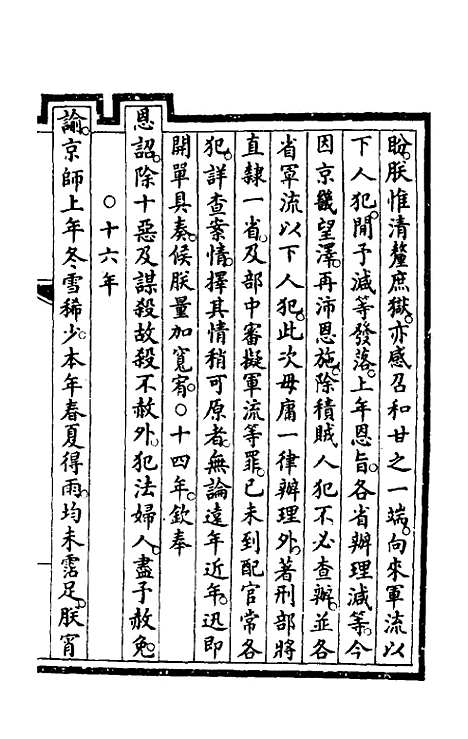 盼。朕惟清釐庶獄。亦感召和甘之一端。向來軍流以
下人犯。閒予減等發落。上年恩旨。各省辦理減等。今
因京畿望澤。再沛恩施。除積賊人犯不必查辦。並各
省軍流以下人犯。此次毋庸一律辦理外。著刑部將
直隸一省。及部中審擬軍流等罪。已未到配官常各
犯。詳查案情。擇其情稍可原者。無論遠年近年。迅即
開單具奏。候朕量加寬宥。○十四年。欽奉
恩詔。除十惡及謀殺故殺不赦外。犯法婦人。盡予赦免。
○十六年
諭。京師上年冬雪稀少。本年春夏得雨。均未霑足。朕宵